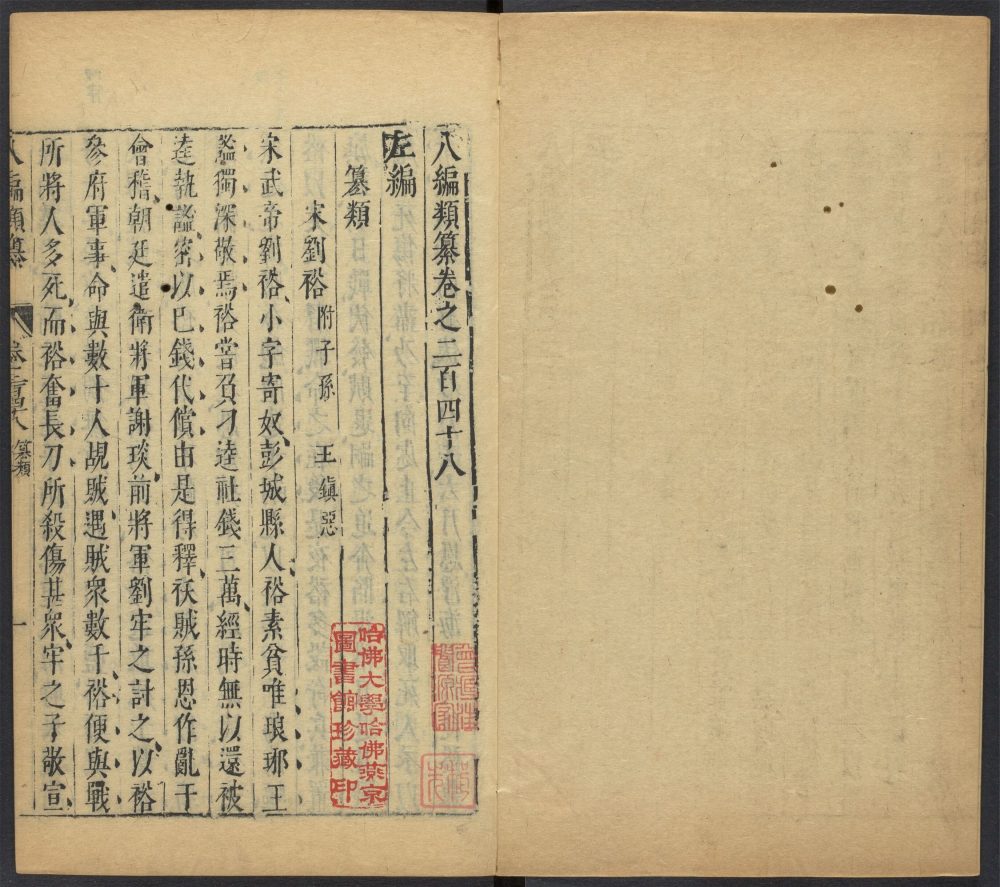 八編類纂卷之二百四十八
左編
篡類
宋劉裕 附子孫 王鎮惡
宋武帝劉裕小字寄奴彭城縣人裕素貧唯琅邪王
謐獨深敬焉裕嘗負刁逵社錢三萬經時無以還被
逵執謐密以巴錢代償由是得釋妖賊孫恩作亂于
會稽朝廷遣衛將軍謝琰前將軍劉牢之討之以裕
參府軍事命與數十人覘賊遇賊衆數千裕便與戰
所將人多死而裕奮長刀所殺傷甚衆牢之子敬宣
八編類纂 篡類 一
哈佛大學哈佛燕京
圖書館珍藏印